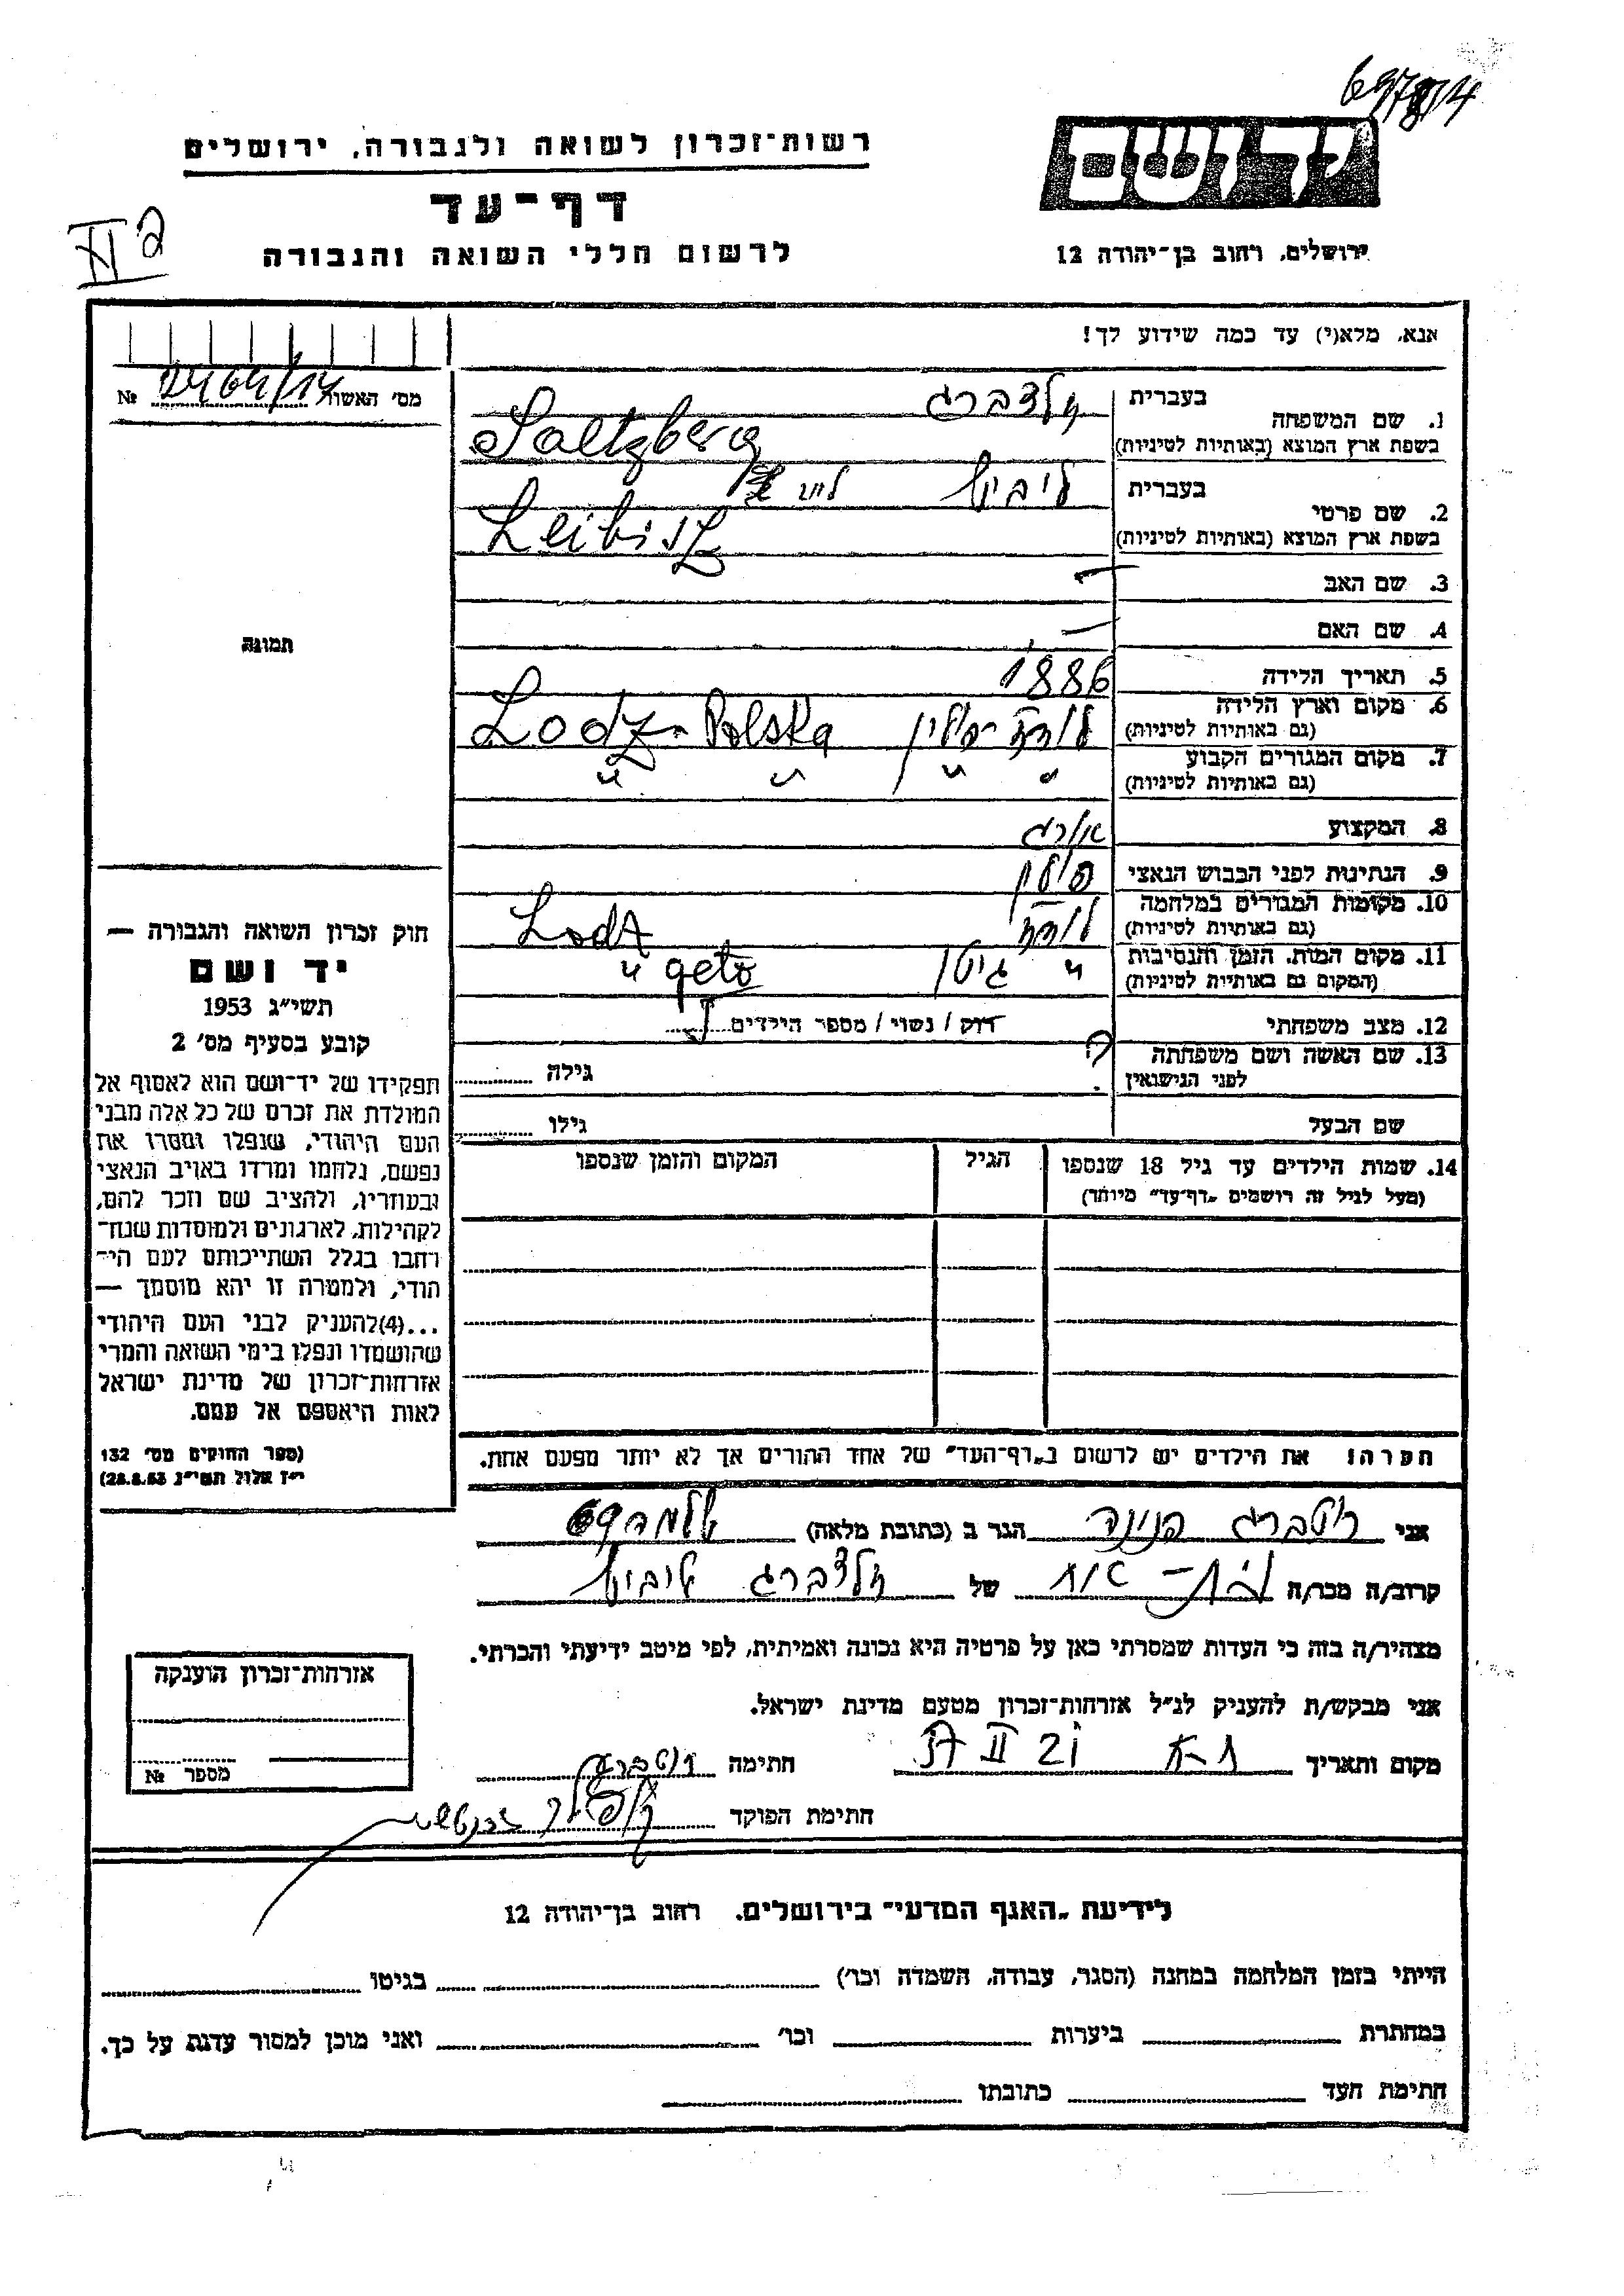 69784
רשות־זכרון לשואה ולגבורה, ירושלים
ידושם
דף־עד
לרשום חללי השואה והגבורה
ירושלים, רחוב בן־יהודה 12
אנא, מלא(י) עד כמה שידוע לך!
מס׳ האשה №
1. שם המשפחה בעברית זלצברג
בשפת ארץ המוצא (באותיות לטיניות) Saltzberg
2. שם פרטי בעברית ליביש
בשפת ארץ המוצא (באותיות לטיניות) Leibisz
3. שם האב —
4. שם האם —
5. תאריך הלידה 1886
6. מקום וארץ הלידה לודז־פולין Lodz - Polska
(גם באותיות לטיניות)
7. מקום המגורים הקבוע " " " "
(גם באותיות לטיניות)
8. המקצוע אורג
9. הנתינות לפני הכבוש הנאצי פולין
10. מקומות המגורים במלחמה לודז Lodz
(גם באותיות לטיניות)
11. מקום המות, הזמן והנסיבות " גיטו " geto
(המקום גם באותיות לטיניות)
12. מצב משפחתי רוק / נשוי / מספר הילדים
13. שם האשה ושם משפחתה ? גילה
לפני הנישואין
שם הבעל גילו
14. שמות הילדים עד גיל 18 שנספו הגיל המקום והזמן שנספו
(מעל לגיל זה רושמים „דף־עד״ מיוחד)
הערה! את הילדים יש לרשום ב„דף־העד״ של אחד ההורים אך לא יותר מפעם אחת.
תמונה
חוק זכרון השואה והגבורה —
יד ושם
תשי״ג 1953
קובע בסעיף מס׳ 2
תפקידו של יד־ושם הוא לאסוף אל
המולדת את זכרם של כל אלה מבני
העם היהודי, שנפלו ומסרו את
נפשם, נלחמו ומרדו באויב הנאצי
ובעוזריו, ולהציב שם וזכר להם,
לקהילות, לארגונים ולמוסדות שנח־
רחבו בגלל השתייכותם לעם הי־
הודי, ולמטרה זו יהא מוסמך —
...(4)להעניק לבני העם היהודי
שהושמדו ונפלו בימי השואה והמרי
אזרחות־זכרון של מדינת ישראל
לאות היאספם אל עמם.
(ספר החוקים מס׳ 132
י״ז אלול תשי״ג 28.8.53)
אני הגר ב (כתובת מלאה)
קרוב/ה מכר/ה של זלצברג ליביש
מצהיר/ה בזה כי העדות שמסרתי כאן על פרטיה היא נכונה ואמיתית, לפי מיטב ידיעתי והכרתי.
אני מבקש/ת להעניק לנ״ל אזרחות־זכרון מטעם מדינת ישראל.
מקום ותאריך ת־א 21 II 57 חתימה
חתימת הפוקד
אזרחות־זכרון הוענקה
מספר №
לידיעת „האגף המדעי״ בירושלים, רחוב בן־יהודה 12
הייתי בזמן המלחמה במחנה (הסגר, עבודה, השמדה וכו׳) בגיטו
במחתרת ביערות וכו׳ ואני מוכן למסור עדות על כך.
חתימת העד כתובתו